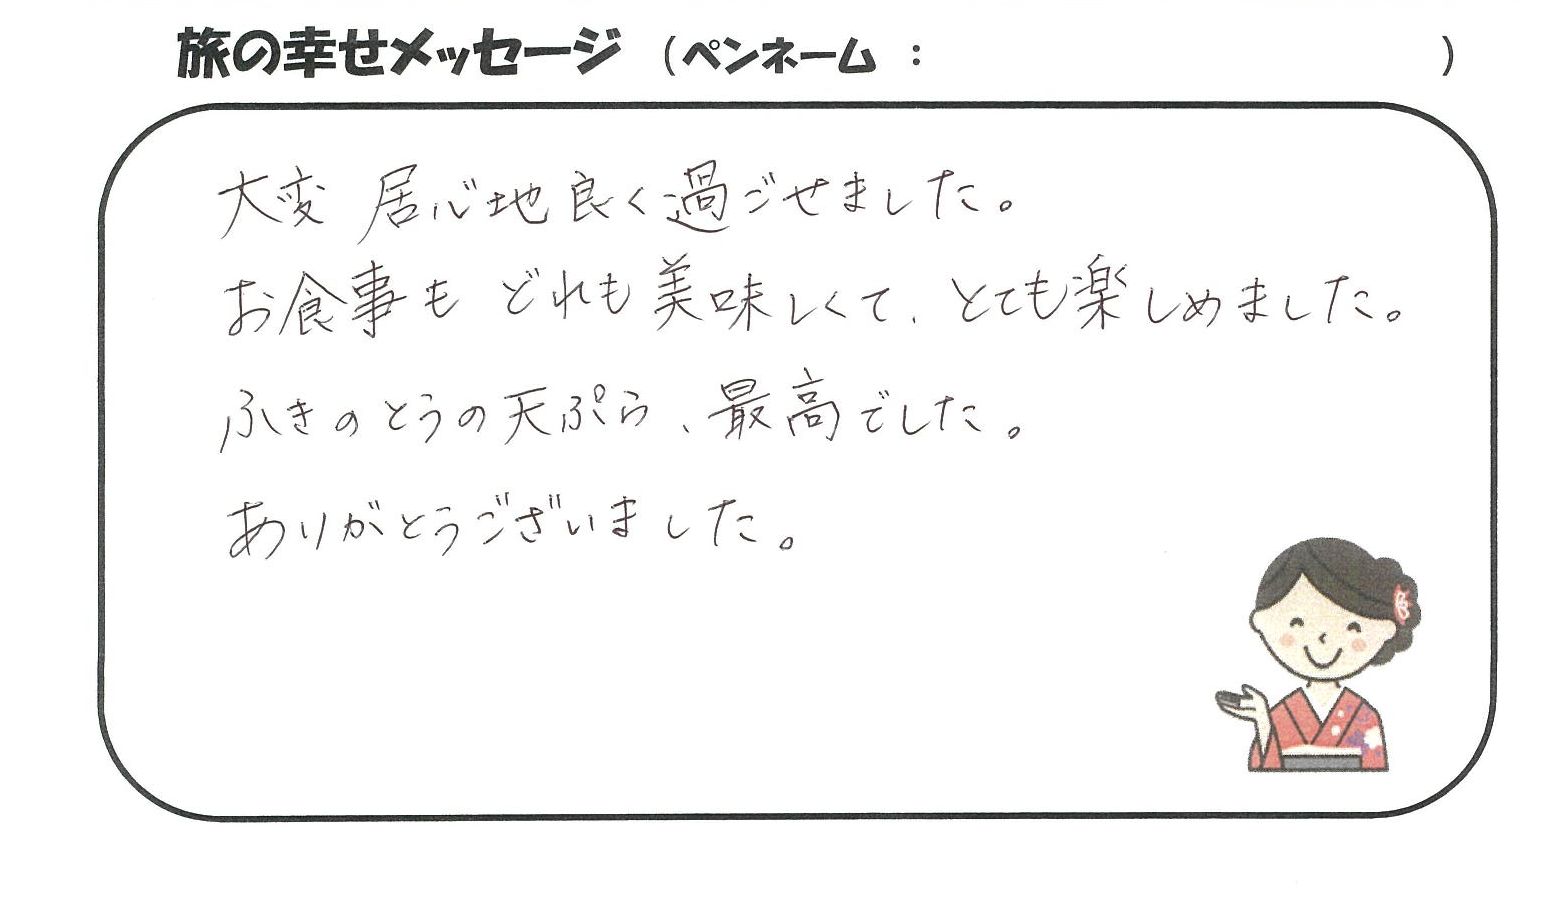 旅の幸せメッセージ （ペンネーム ： ）
大変 居心地良く過ごせました。
お食事も どれも美味しくて、とても楽しめました。
ふきのとうの天ぷら、最高でした。
ありがとうございました。